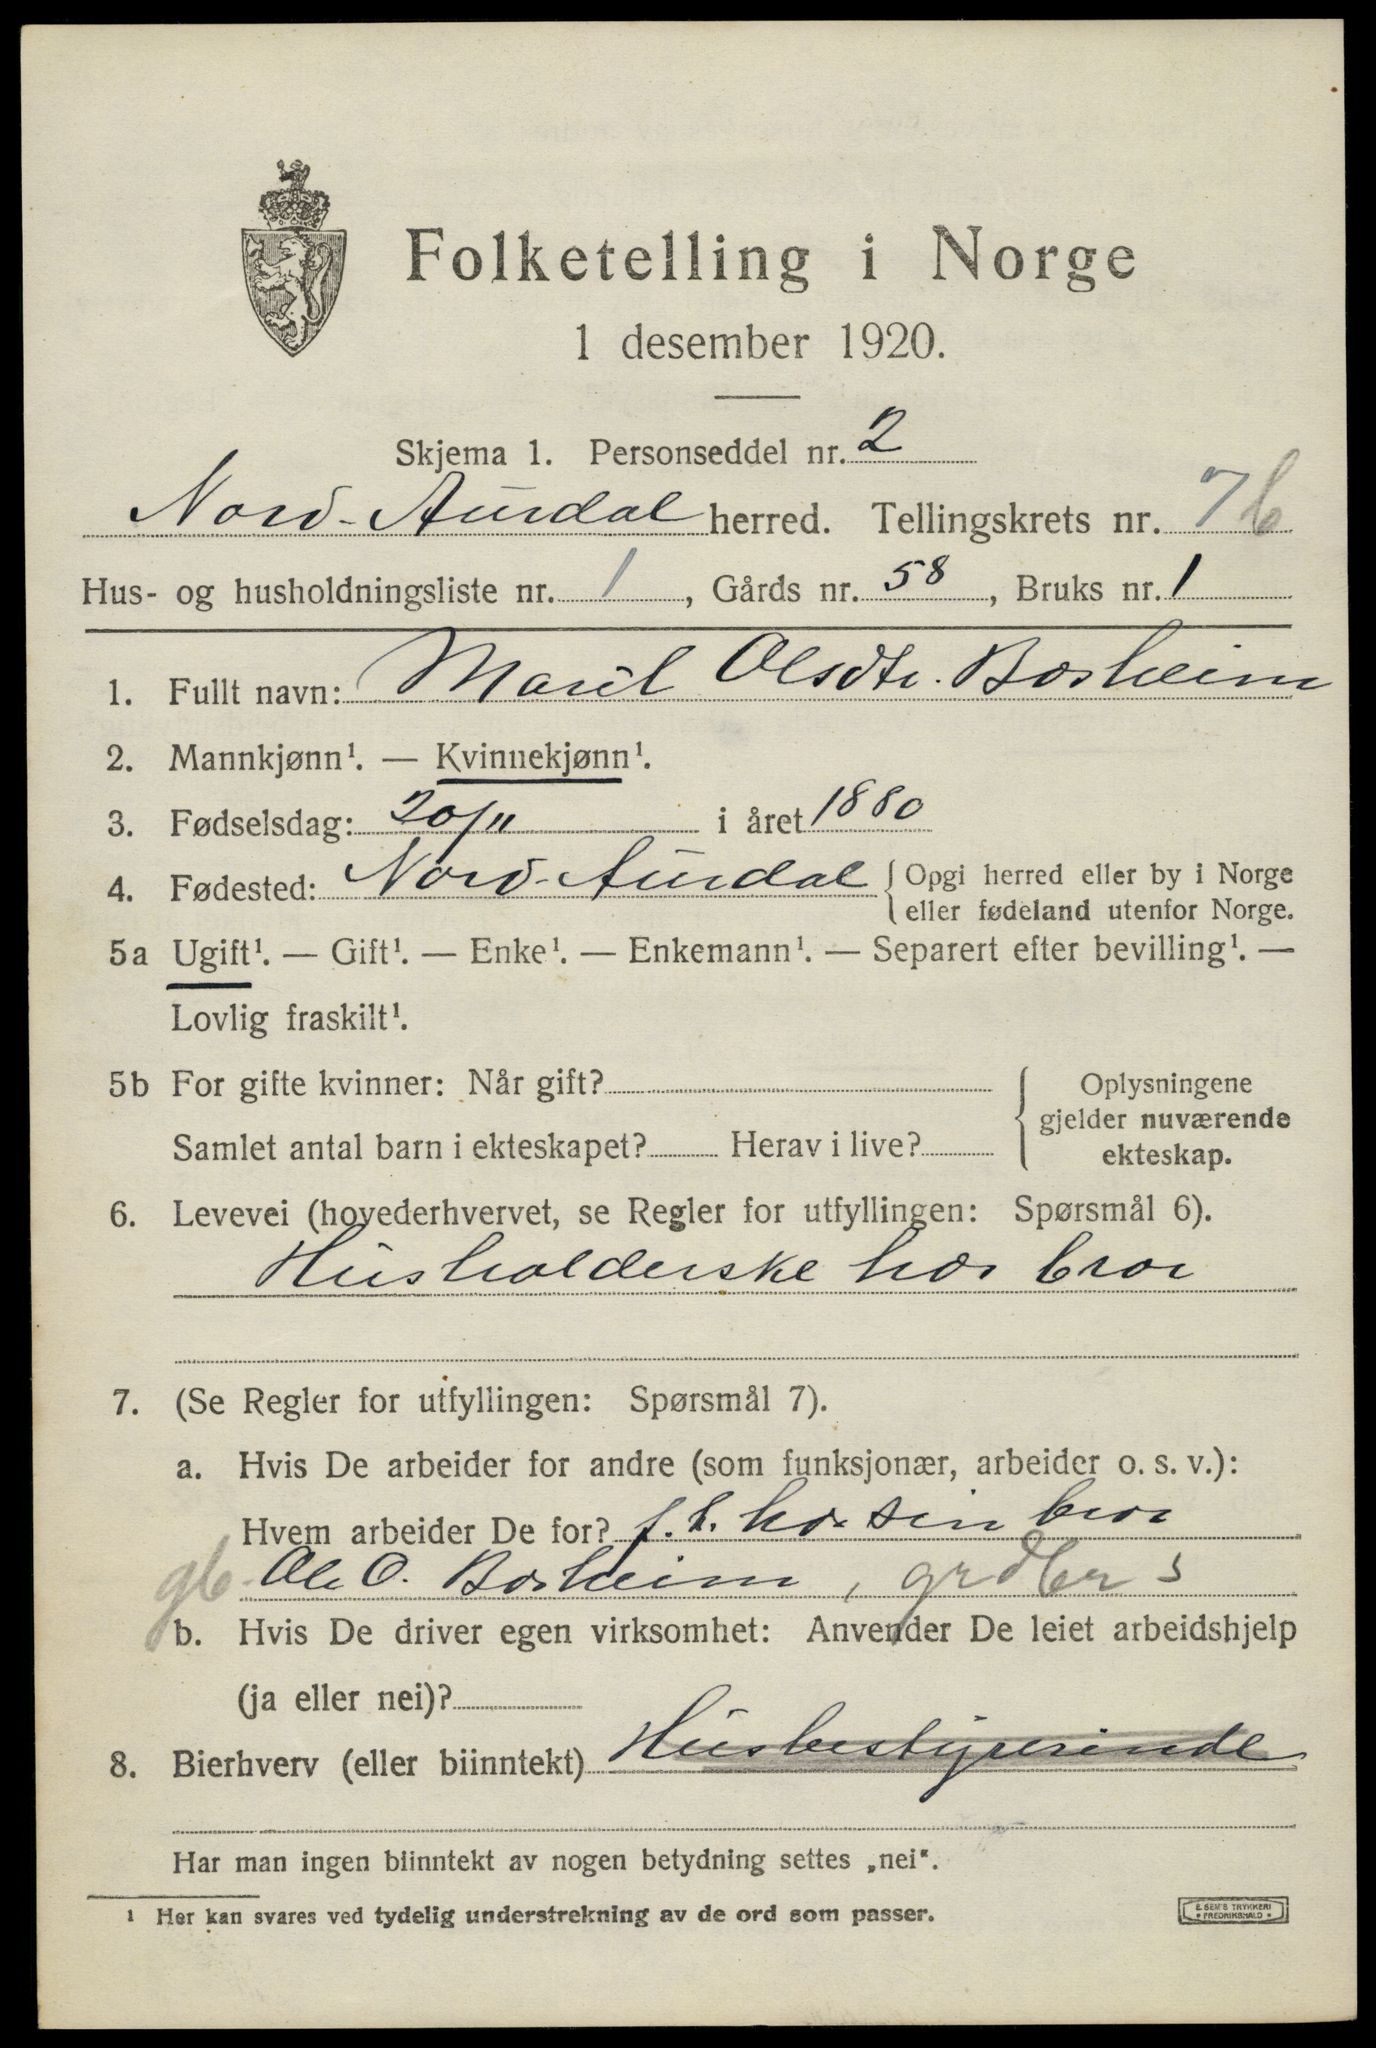 Folketelling i Norge
1 desember 1920.
Skjema 1. Personseddel nr. 2
Nord-Aurdal herred. Tellingskrets nr. 7 b
Hus- og husholdningsliste nr. 1, Gårds nr. 58, Bruks nr. 1
1. Fullt navn: Marit Olsdtr. Bosheim
2. Mannkjønn¹. — Kvinnekjønn¹.
3. Fødselsdag: 20/11 i året 1880
4. Fødested: Nord-Aurdal { Opgi herred eller by i Norge
eller fødeland utenfor Norge.
5a Ugift¹. — Gift¹. — Enke¹. — Enkemann¹. — Separert efter bevilling¹. —
Lovlig fraskilt¹.
5b For gifte kvinner: Når gift?
Samlet antal barn i ekteskapet? Herav i live?
{ Oplysningene
gjelder nuværende
ekteskap.
6. Levevei (hovederhvervet, se Regler for utfyllingen: Spørsmål 6).
Husholderske hos bror
7. (Se Regler for utfyllingen: Spørsmål 7).
a. Hvis De arbeider for andre (som funksjonær, arbeider o. s. v.):
Hvem arbeider De for? f. t. hos sin bror
gb Ole O. Bosheim, grdbr s
b. Hvis De driver egen virksomhet: Anvender De leiet arbeidshjelp
(ja eller nei)?
8. Bierhverv (eller biinntekt) Husbestyrerinde
Har man ingen biinntekt av nogen betydning settes „nei".
¹ Her kan svares ved tydelig understrekning av de ord som passer.
E. SEM'S TRYKKERI
FREDRIKSHALD